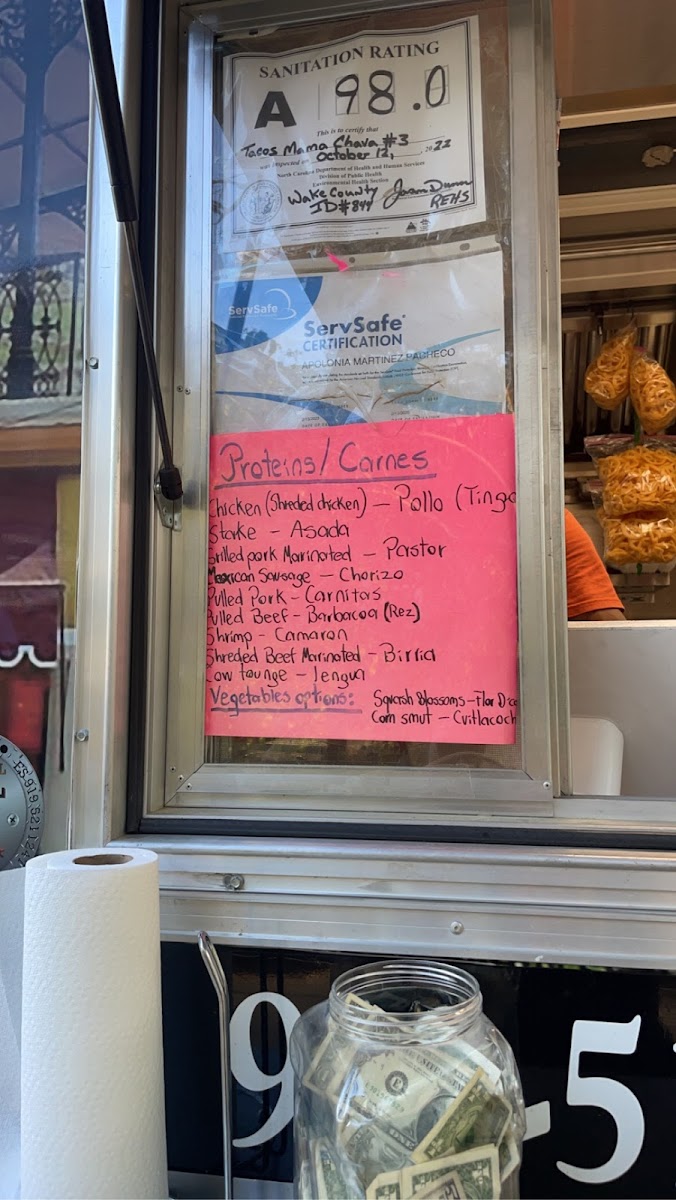 SANITATION RATING
A 98.0
This is to certify that
Tacos Mama Chava #3
was inspected on October 12, 2022
North Carolina Department of Health and Human Services
Division of Public Health
Environmental Health Section
Wake County
ID# 844
REHS
ServSafe
ServSafe
CERTIFICATION
APOLONIA MARTINEZ PACHECO
Proteins/Carnes
Chicken (Shreded chicken) - Pollo (Tinga
Stake - Asada
Grilled pork Marinated - Pastor
Mexican Sausage - Chorizo
Pulled Pork - Carnitas
Pulled Beef - Barbacoa (Rez)
Shrimp - Camaron
Shreded Beef Marinated - Birria
Cow tounge - lengua
Vegetables options: Squash Blossoms - Flor D
Corn smut - Cuitlacoch
9 -5